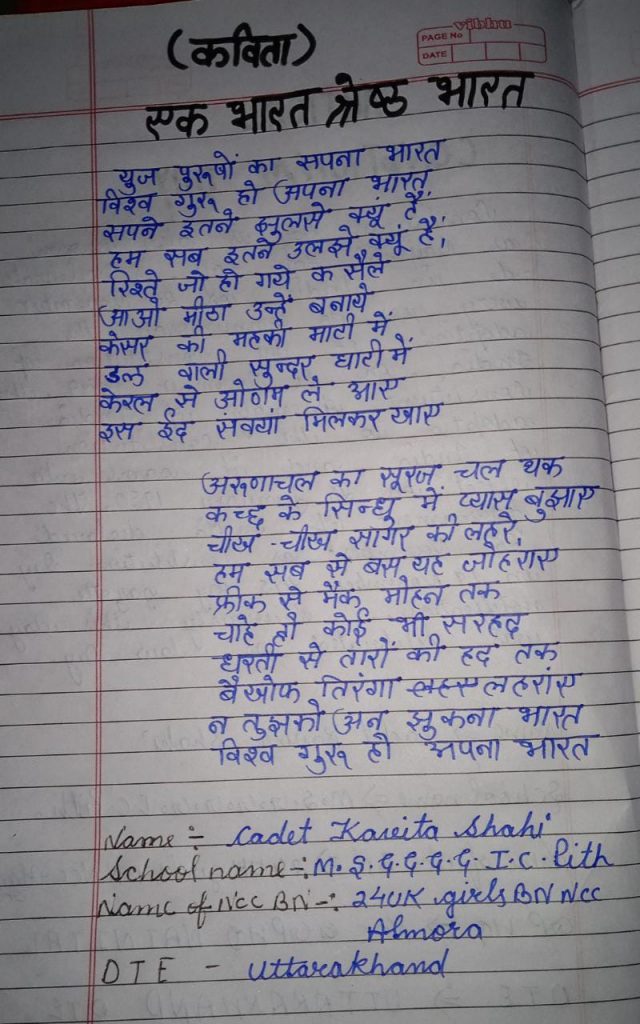 vibhu
PAGE No
DATE
(कविता)
एक भारत श्रेष्ठ भारत
युज पुरूषों का सपना भारत
विश्व गुरू हो अपना भारत,
सपने इतने झुलसे क्यूं है,
हम सब इतने उलझे क्यूं है,
रिश्ते जो हो गये क सैले
आओ मीठा उन्हें बनाये
केसर की महकी माटी में
डल वाली सुन्दर घाटी में
केरल से ओणम ले आए
इस ईद संवयां मिलकर खाए
अरुणाचल का सूरज चल थक
कच्छ के सिन्धु में प्यास बुझाए
चीख-चीख सागर की लहरे,
हम सब से बस यह जोहराए
फ्रीक से मैक मोहन तक
चाहे हो कोई भी सरहद
धरती से तारों की हद तक
बेखोफ तिरंगा लहराए
न तुझको अन झुकना भारत
विश्व गुरू हो अपना भारत
Name:- Cadet Kareita Shahi
School name-: M.S.G.G.G.G.I.C. Pith
Name of NCC BN-: 24UK girls BN NCC
Almora
DTE - Uttarakhand